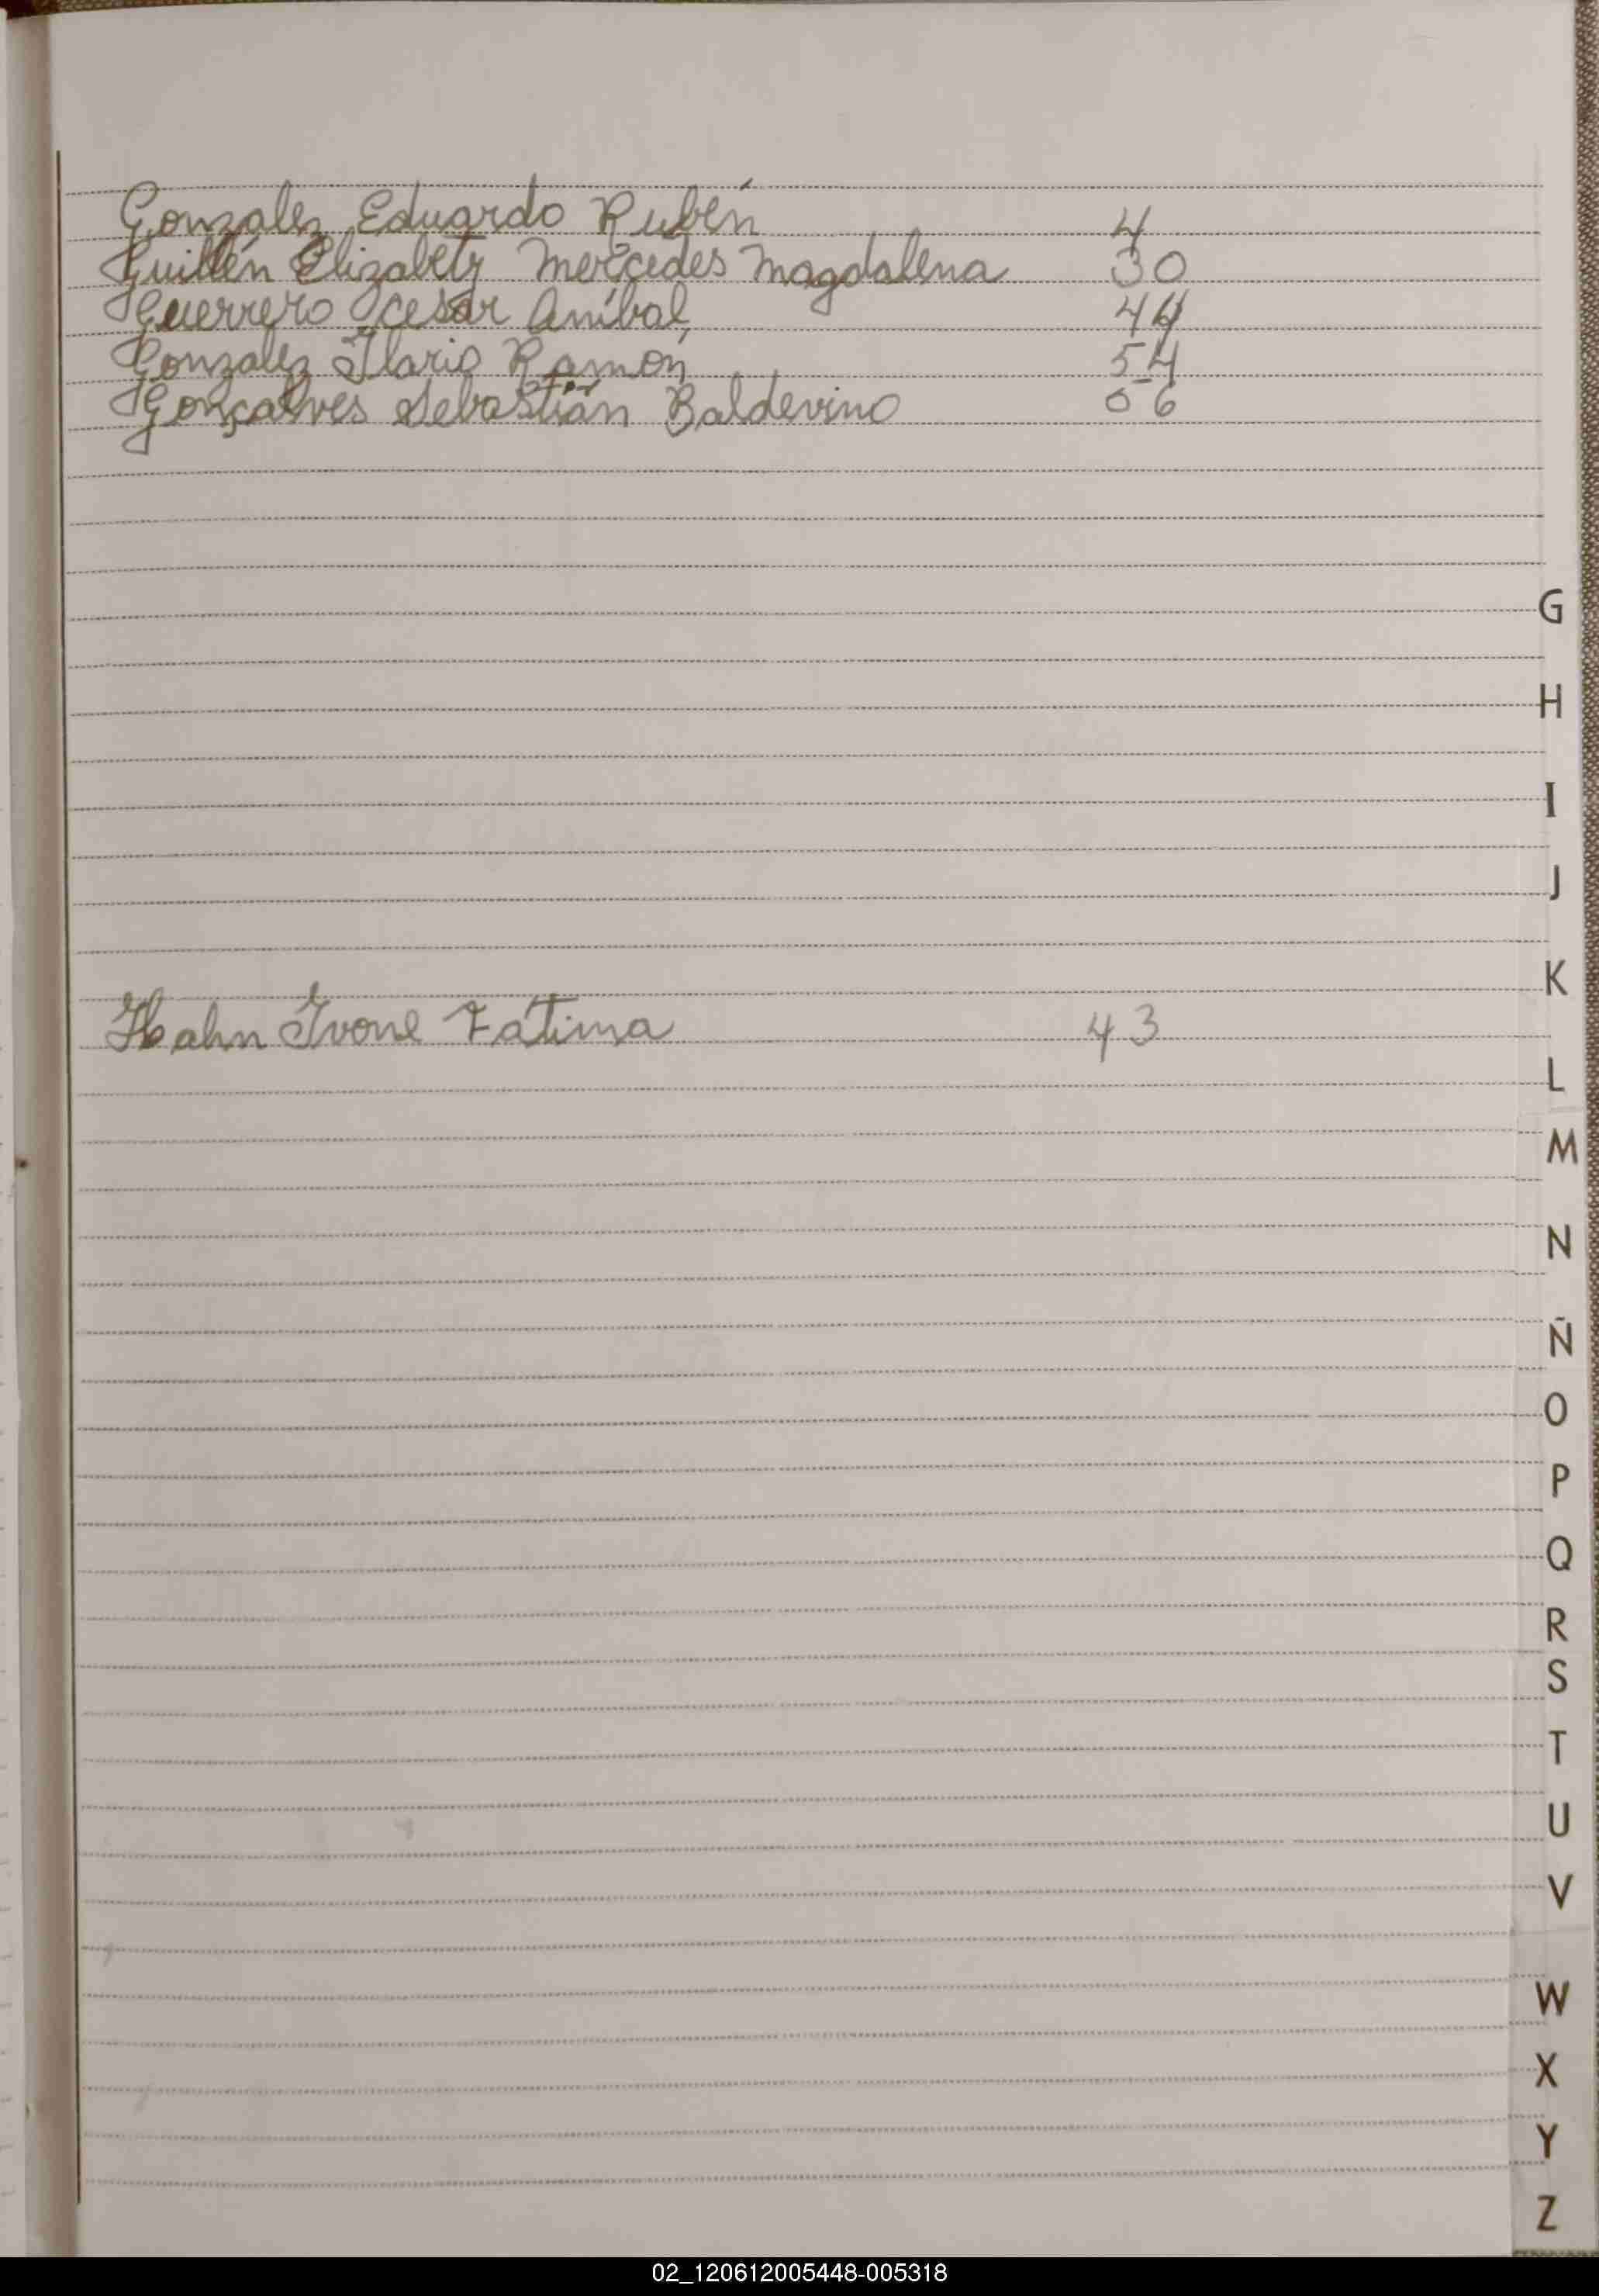 Gonzalez Eduardo Rubén 4
Guillén Elizabeth Mercedes Magdalena 30
Guerrero Cesar Aníbal 44
Gonzalez Ilario Ramón 54
Gonçalves Sebastián Baldevino 56
G
H
I
J
K
Hahn Ivone Fatima 43
L
M
N
Ñ
O
P
Q
R
S
T
U
V
W
X
Y
Z
02_120612005448-005318